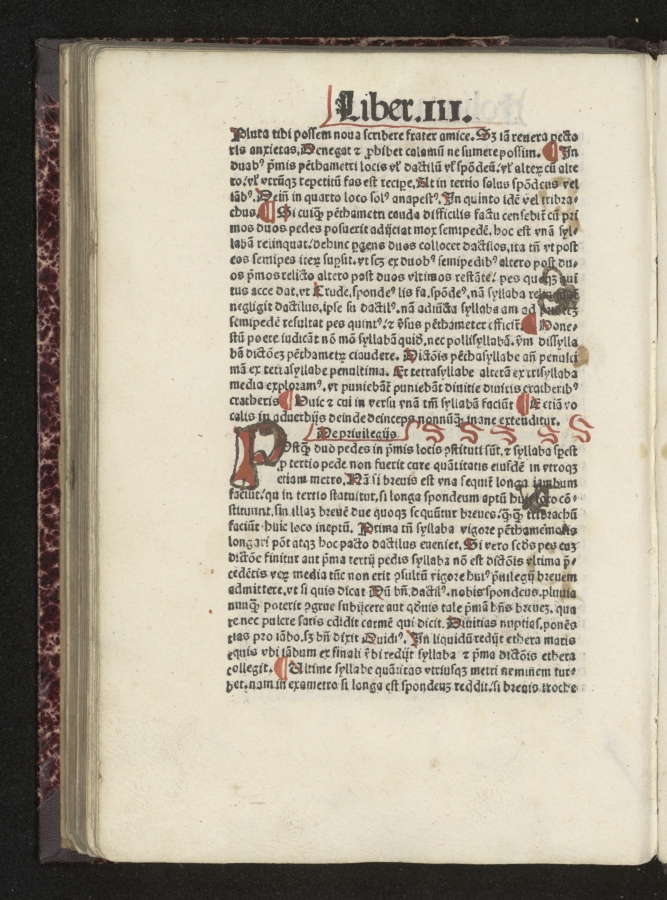 Liber.III.
Pluta tibi possem noua scribere frater amice. Sꝫ iā renera pecto
ris anxietas. Denegat ⁊ ꝓhibet calamū ne sumere possim. In
duabꝰ p̄mis pēthametri locis vľ dactilū vľ spōdeū. vľ alteꝝ cū alte
ro. vľ vtrūqꝫ repetitū fas est recipe. At in tertio solus spōdeus vel
iābꝰ. Dein̄ in quarto loco solꝰ anapestꝰ. In quinto idē vel tribra-
chus. Si cuiqꝫ pēthametri cauda difficilis factu censebit̄ cū pri
mos duos pedes posuerit adijciat mox semipedē. hoc est vnā syl-
labā relinquat. dehinc ꝑgens duos collocet dactilos. ita tn̄ vt post
eos semipes iteꝝ supsit. vt sep ex duobꝰ semipedibꝰ altero post du-
os p̄mos relicto altero post duos vltimos restāte. pes quoqꝫ qui
tus acce dat. vt Crude. spondeꝰ lis fa. spōdeꝰ. nā syllaba
negligit dactilus. ipse su dactilꝰ. nā adiūcta syllaba am ad
semipedē resultat pes quintꝰ. ⁊ ꝟsus pēthameter efficit̄. Hone-
stū poete iudicāt nō mō syllabā quid. nec pollisyllabā. ꝟm dissylla
bā dictōeꝫ pēthametꝝ claudere. Dictōis pēthasyllabe an̄ penulti
mā ex tetrasyllabe penultima. Et tetrasyllabe alterā ex trisyllaba
media exploramꝰ. vt puniebāt̄ puniebāt diuitie diuitis cratheribꝰ
cratheris Huic ⁊ cui in versu vnā tm̄ syllabā faciūt Etiā vo
calis in aduerbijs deinde deinceps nonnūqꝫ inane extenditur.
De priuilegijs.
Postqꝫ duo pedes in p̄mis locis ꝯstituti sūt. ⁊ syllaba spest
ꝓ tertio pede non fuerit cure quātitatis eiusdē in vtroqꝫ
etiam metro. Nā si breuis est vna sequit̄ longa iambum
faciūt. qui in tertio statuitur. si longa spondeum aptū huic loco cō-
stituunt. sin illaꝫ breuē due quoqꝫ sequūtur breues. tribrachū
faciūt huic loco ineptū. Prima tn̄ syllaba vigore pēthemimeris
longari pōt atqꝫ hoc pacto dactilus eueniet. Si vero scd̄s pes cuꝫ
dictōe finitur aut p̄ma tertij pedis syllaba nō est dictōis vltima p̄-
cedētis veꝝ media tūc non erit ꝯsultū rigore huiꝰ p̄uilegij breuem
admittere. vt si quis dicat Dū bn̄. dactilꝰ. nobis spondeus. pluuia
nunqꝫ poterit ꝯgrue subijcere aut qōnis tale p̄mā bn̄s breueꝫ. qua
re nec pulcre satis cōdidit carmē qui dicit. Diuitias nuptias. ponēs
tias pro iābo. sꝫ bn̄ dixit Ouidiꝰ. In liquidū redijt ethera matis
equis vbi iābum ex finali ꝟbi redijt syllaba ⁊ p̄ma dictōis ethera
collegit. Ultime syllabe quātitas vtriusqꝫ metri neminem tur-
bet. nam in exametro si longa est spondeuꝫ reddit. si breuis troche